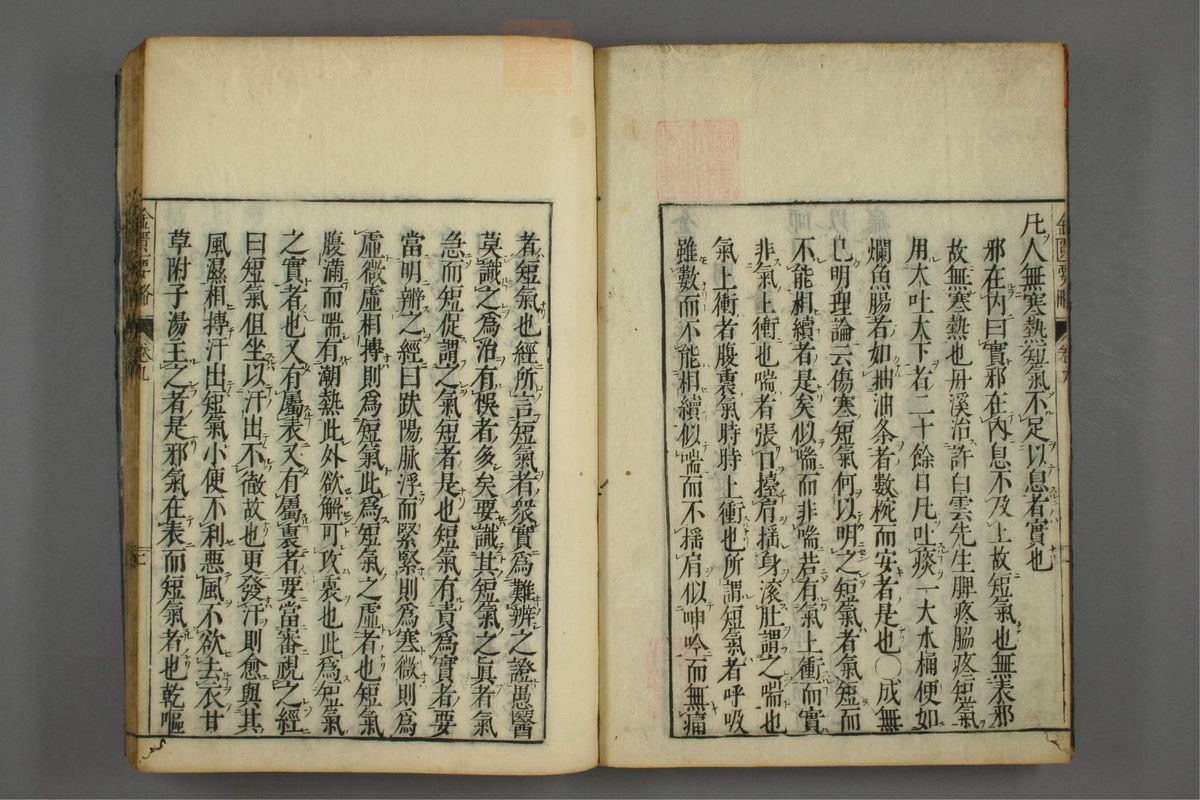 凡人無寒熱短氣不足以息者實也
邪在内曰實邪在内息不及上故短氣也無表邪
故無寒熱也丹溪治許白雲先生脾疼脇疼短氣
用大吐大下者二十餘日凡吐痰一大水桶便如
爛魚腸者如抽油条者數椀而安者是也〇成無
已明理論云傷寒短氣何以明之短氣者氣短而
不能相續者是矣似喘而非喘若有氣上衝而實
非氣上衝也喘者張口擡肩揺身滚肚謂之喘也
氣上衝者腹裏氣時時上衝也所謂短氣者呼吸
雖數而不能相續似喘而不揺肩似呻吟而無痛
者短氣也經所言短氣者衆實爲難辨之證愚醫
莫識之爲治有悞者多矣要識其短氣之眞者氣
急而短促謂之氣短者是也短氣有責爲實者要
當明辨之經曰趺陽脉浮而緊緊則爲寒微則爲
虛微虛相摶則爲短氣此爲短氣之虛者也短氣
腹滿而喘有潮熱此外欲解可攻裏也此爲短氣
之實者也又有屬表又有屬裏者要當審視之經
曰短氣但坐以汗出不徹故也更發汗則愈與其
風濕相摶汗出短氣小便不利惡風不欲去衣甘
草附子湯主之者是邪氣在表而短氣者也乾嘔
金匱要略
卷九